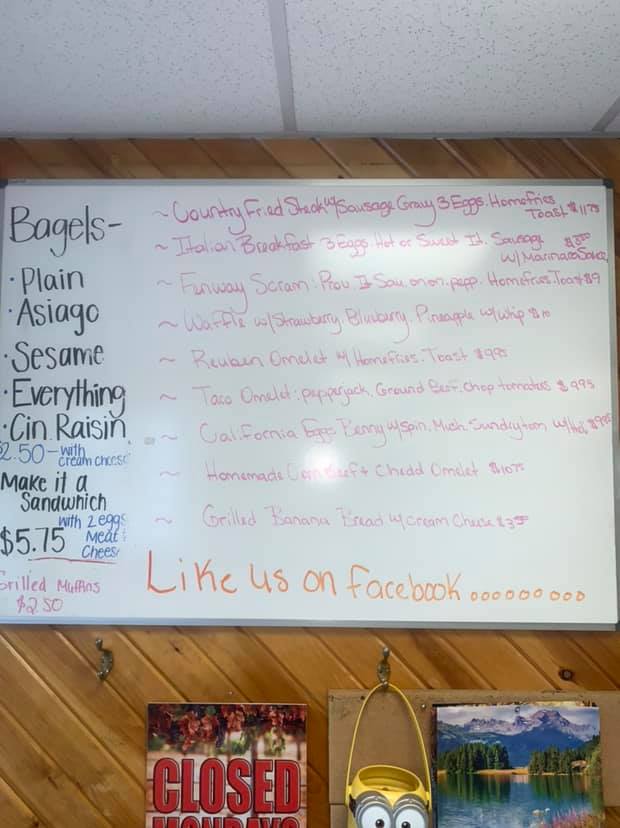 Bagels-
· Plain
· Asiago
· Sesame
· Everything
· Cin. Raisin
2.50 - with cream cheese
Make it a
Sandwhich
$5.75 with 2 eggs
Meat &
Cheese
Grilled Muffins
$2.50
~ Country Fried Steak w/ Sausage Gravy 3 Eggs. Homefries
Toast $11.75
~ Italian Breakfast 3 Eggs. Hot or Sweet It. Sausage
w/ Marinara Sauce
~ Fenway Scram: Prov. It Sau. onon. pepp. Homefries. Toast $9
~ Waffle w/ Strawberry, Blueberry, Pineapple w/ Whip $10
~ Reuben Omelet w/ Homefries. Toast $9.95
~ Taco Omelet: pepperjack, Ground Beef. Chop tomatoes $9.95
~ California Eggs Benny w/ spin. Mush. Sundrytom w/
~ Homemade Corn Beef + Chedd Omelet $10.75
~ Grilled Banana Bread w/ Cream Cheese
Like us on facebook.........
CLOSED
MONDAYS